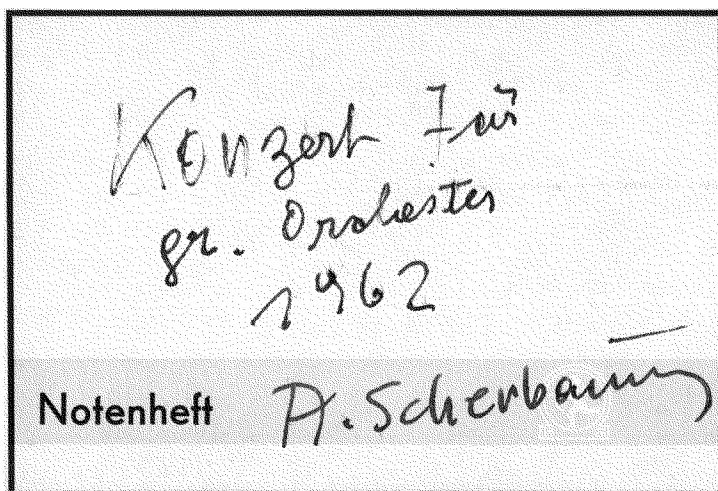 Konzert für
gr. Orchester
1962
Notenheft A. Scherbaum